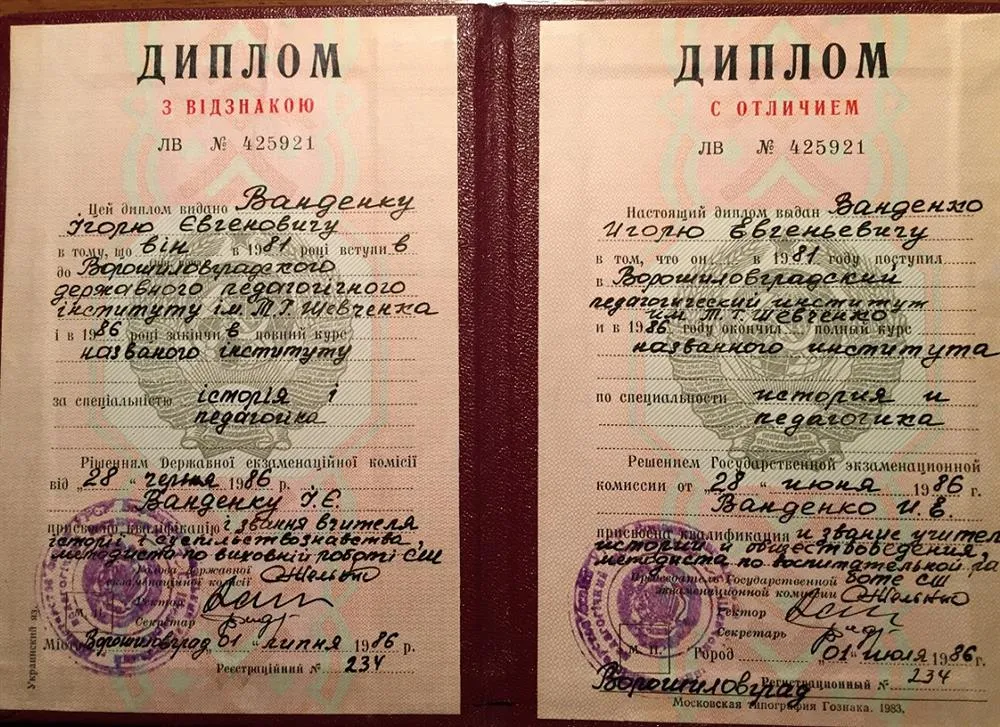 ДИПЛОМ
З ВІДЗНАКОЮ
ЛВ № 425921
Цей диплом видано Ванденку
Ігорю Євгеновичу
в тому, що він в 1981 році вступив
до Ворошиловградского
державного педагогічного
інституту ім. Т.Г. Шевченка
і в 1986 році закінчив повний курс
названого інституту
за спеціальністю історія і
педагогіка
Рішенням Державної екзаменаційної комісії
від „28“ червня 1986 р.
Ванденку І.Є.
присвоєно кваліфікацію і звання вчителя
історії і суспільствознавства,
методиста по виховній роботі СШ
Голова Державної
екзаменаційної комісії
Ректор
Секретар
М. П.
Місто Ворошиловград „01“ липня 1986 р.
Реєстраційний № 234
Украинский яз.
ДИПЛОМ
С ОТЛИЧИЕМ
ЛВ № 425921
Настоящий диплом выдан Ванденко
Игорю Евгеньевичу
в том, что он в 1981 году поступил
в Ворошиловградский
педагогический институт
им. Т.Г. Шевченко
и в 1986 году окончил полный курс
названного института
по специальности история и
педагогика
Решением Государственной экзаменационной
комиссии от „28“ июня 1986 г.
Ванденко И.Е.
присвоена квалификация и звание учителя
истории и обществоведения,
методиста по воспитательной ра
боте СШ
Председатель Государственной
экзаменационной комиссии
Ректор
Секретарь
М. П.
Город „01“ июля 1986 г.
Ворошиловград
Регистрационный № 234
Московская типография Гознака. 1983.